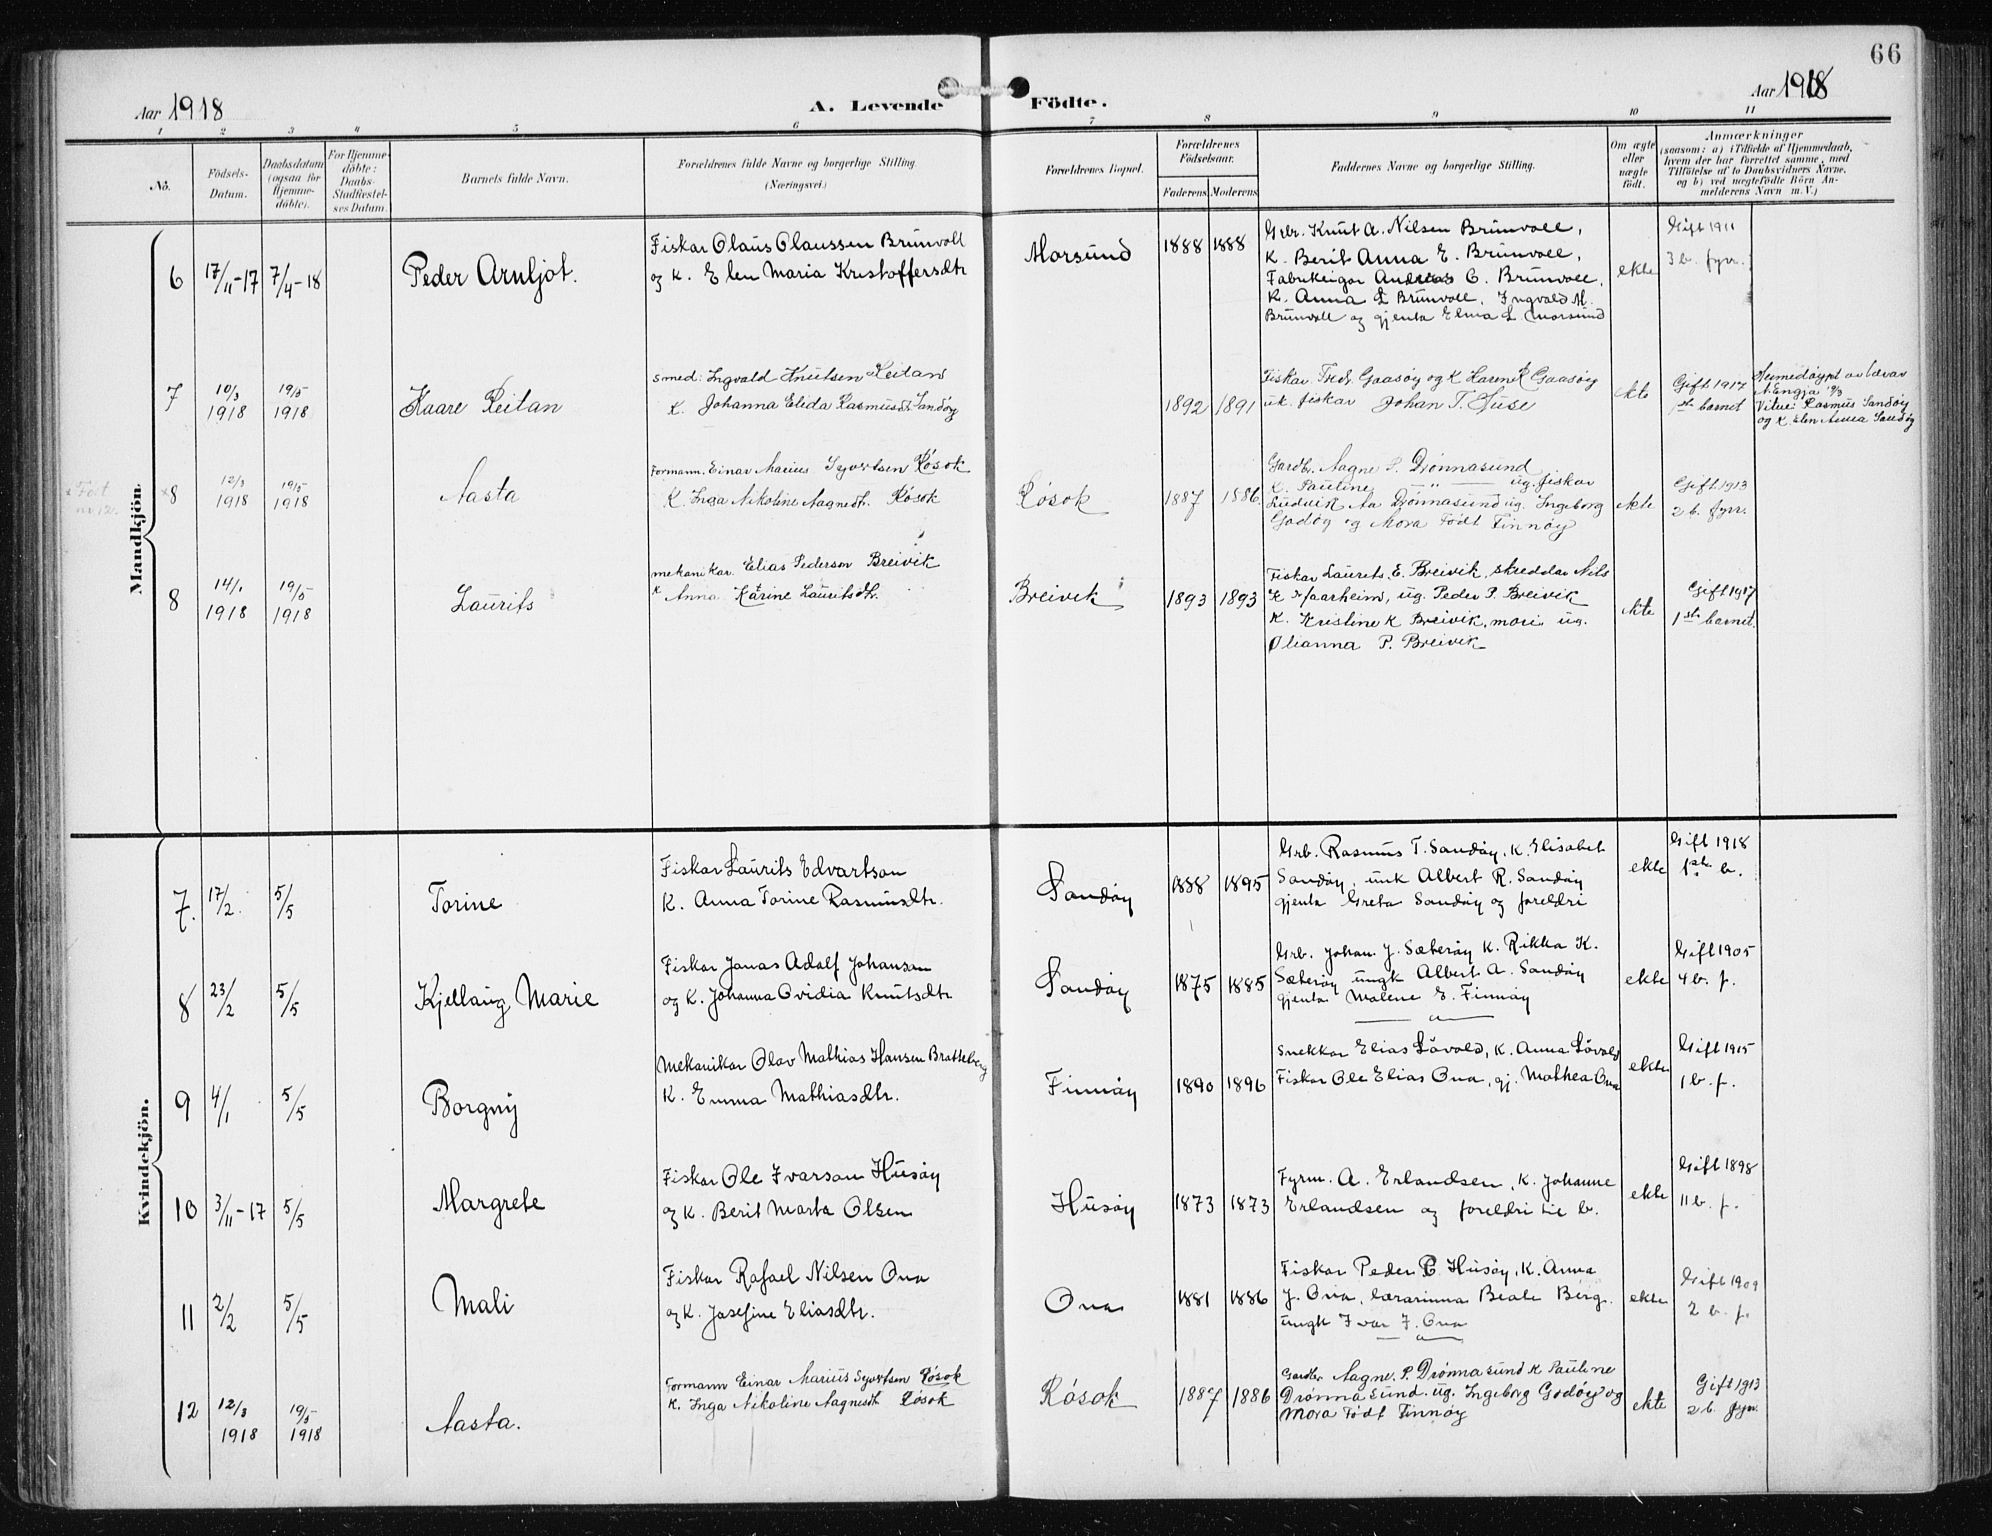 66
Aar 1918
A. Levende Födte.
Aar 1918
1 2 3 4 5 6 7 8 9 10 11
No.
Födsels-Datum.
Daabsdatum (ogsaa for Hjemme-döbte).
For Hjemme-döbte: Daabs-Stadfæstel-ses Datum.
Barnets fulde Navn.
Forældrenes fulde Navne og borgerlige Stilling. (Næringsvei.)
Forældrenes Bopæl.
Forældrenes Födselsaar.
Faderens Moderens
Faddernes Navne og borgerlige Stilling.
Om ægte eller uægte födt.
Anmærkninger
(saasom: a) i Tilfælde af Hjemmedaab, hvem der har forrettet samme, med Tilföielse af to Daabsvidners Navne, og b) ved uægtefödte Börn Anmelderens Navn m. V.)
Mandkjön.
6 17/11-17 7/4-18 Peder Arnljot.
Fiskar Olaus Olaussen Brunvoll
og K. Elen Maria Kristoffersdtr
Morsund 1888 1888
Grbr. Knut A. Nilsen Brunvoll,
K. Berit Anna E. Brunvoll,
Fabrikeigar Andreas C. Brunvoll,
K. Anna L Brunvoll, Ingvald M.
Brunvoll og gjenta Elma L. Morsund
ekte
Gift 1911
3 b. fyrr.
7 10/3 1918 19/5 1918 Kaare Reitan
Smed: Ingvald Knutsen Reitan
K. Johanna Elida Rasmusdt. Sandøy
1892 1891
Fiskar Fredr. Gaasøy og K Karen K Gaasøy
uk. fiskar Johan T. Huse
ekte
Gift 1917
1ste barnet
Heimedøypt av lærar
N. Engja 10/3
Vitne: Rasmus Sandøy
og K. Elen Anna Sandøy
x Født nr 12.
x8 12/3 1918 19/5 1918 Aasta
Formann. Einar Marius Syvertsen Røsok
K. Inga Nikoline Aagnedt. Røsok
Røsok 1887 1886
Gardbr. Aagne P. Drønnasund
K. Pauline —"— ug. fiskar
Ludvik Aa Drønnasund ug. Ingeborg
Godøy og Mora Født Finnøy
ekte
Gift 1913
2 b. fyrr.
8 14/1 1918 19/5 1918 Laurits
mekanikar. Elias Pederson Breivik
K Anna Karine Lauritsdtr.
Breivik 1893 1893
Fiskar Laurits. E. Breivik, skreddar Nils
K Haarheim, ug. Peder P. Breivik
K. Kristine K Breivik, mori ug.
Olianna P. Breivik
ekte
Gift 1917
1ste barnet.
Kvindekjön.
7. 17/2. 5/5 Torine
Fiskar Laurits Edvartson
K. Anna Torine Rasmusdtr.
Sandøy 1888 1895
Grb. Rasmus T. Sandøy, K. Elisabet
Sandøy, unk Albert R. Sandøy
gjenta Greta Sandøy og foreldri
ekte
Gift 1918
1ste. b.
8 23/2 5/5 Kjellaug Marie
Fiskar Jonas Adolf Johanson
og K. Johanna Ovidia Knutsdtr
Sandøy 1875 1885
Grb. Johan J. Sæterøy K. Rikka K.
Sæterøy ungk Albert A. Sandøy
gjenta Malene E. Finnøy
ekte
Gift 1905
4 b. f.
9 4/1 5/5 Borgny
Mekanikar Olav Mathias Hansen Brattberg
K. Emma Mathiasdtr.
Finnøy 1890 1896
Snekkar Elias Løvold, K. Anna Løvold
Fiskar Ole Elias Ona, gj. Mathea Ona
ekte
Gift 1915
1 b. f.
10 3/11-17 5/5 Margrete
Fiskar Ole Ivarson Husøy
og K. Berit Marta Olsen
Husøy 1873 1873
Fyrm. A. Erlandsen, K. Johanne
Erlandsen og foreldri til b.
ekte
Gift 1898
11 b. f.
11 2/2 5/5 Mali
Fiskar Rafael Nilsen Ona
og K. Josefine Eliasdtr.
Ona 1881 1886
Fiskar Peder P. Husøy, K. Anna
J. Ona, lærarinna Beate Berg.
ungk Ivar J. Ona
ekte
Gift 1909
2 b. f.
12 12/3 1918 19/5 1918 Aasta.
Formann Einar Marius Syvertsen Røsok
K. Inga Nikoline Aagnedt Røsok
Røsok 1887 1886
Gardbr Aagne. P. Drønnasund K Pauline
Drønnasund. ug. Ingeborg Godøy og
Mora Født Finnøy
ekte
Gift 1913
2 b. fyrr.